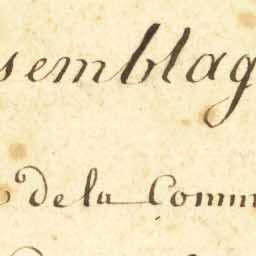 semblag
de la Comm